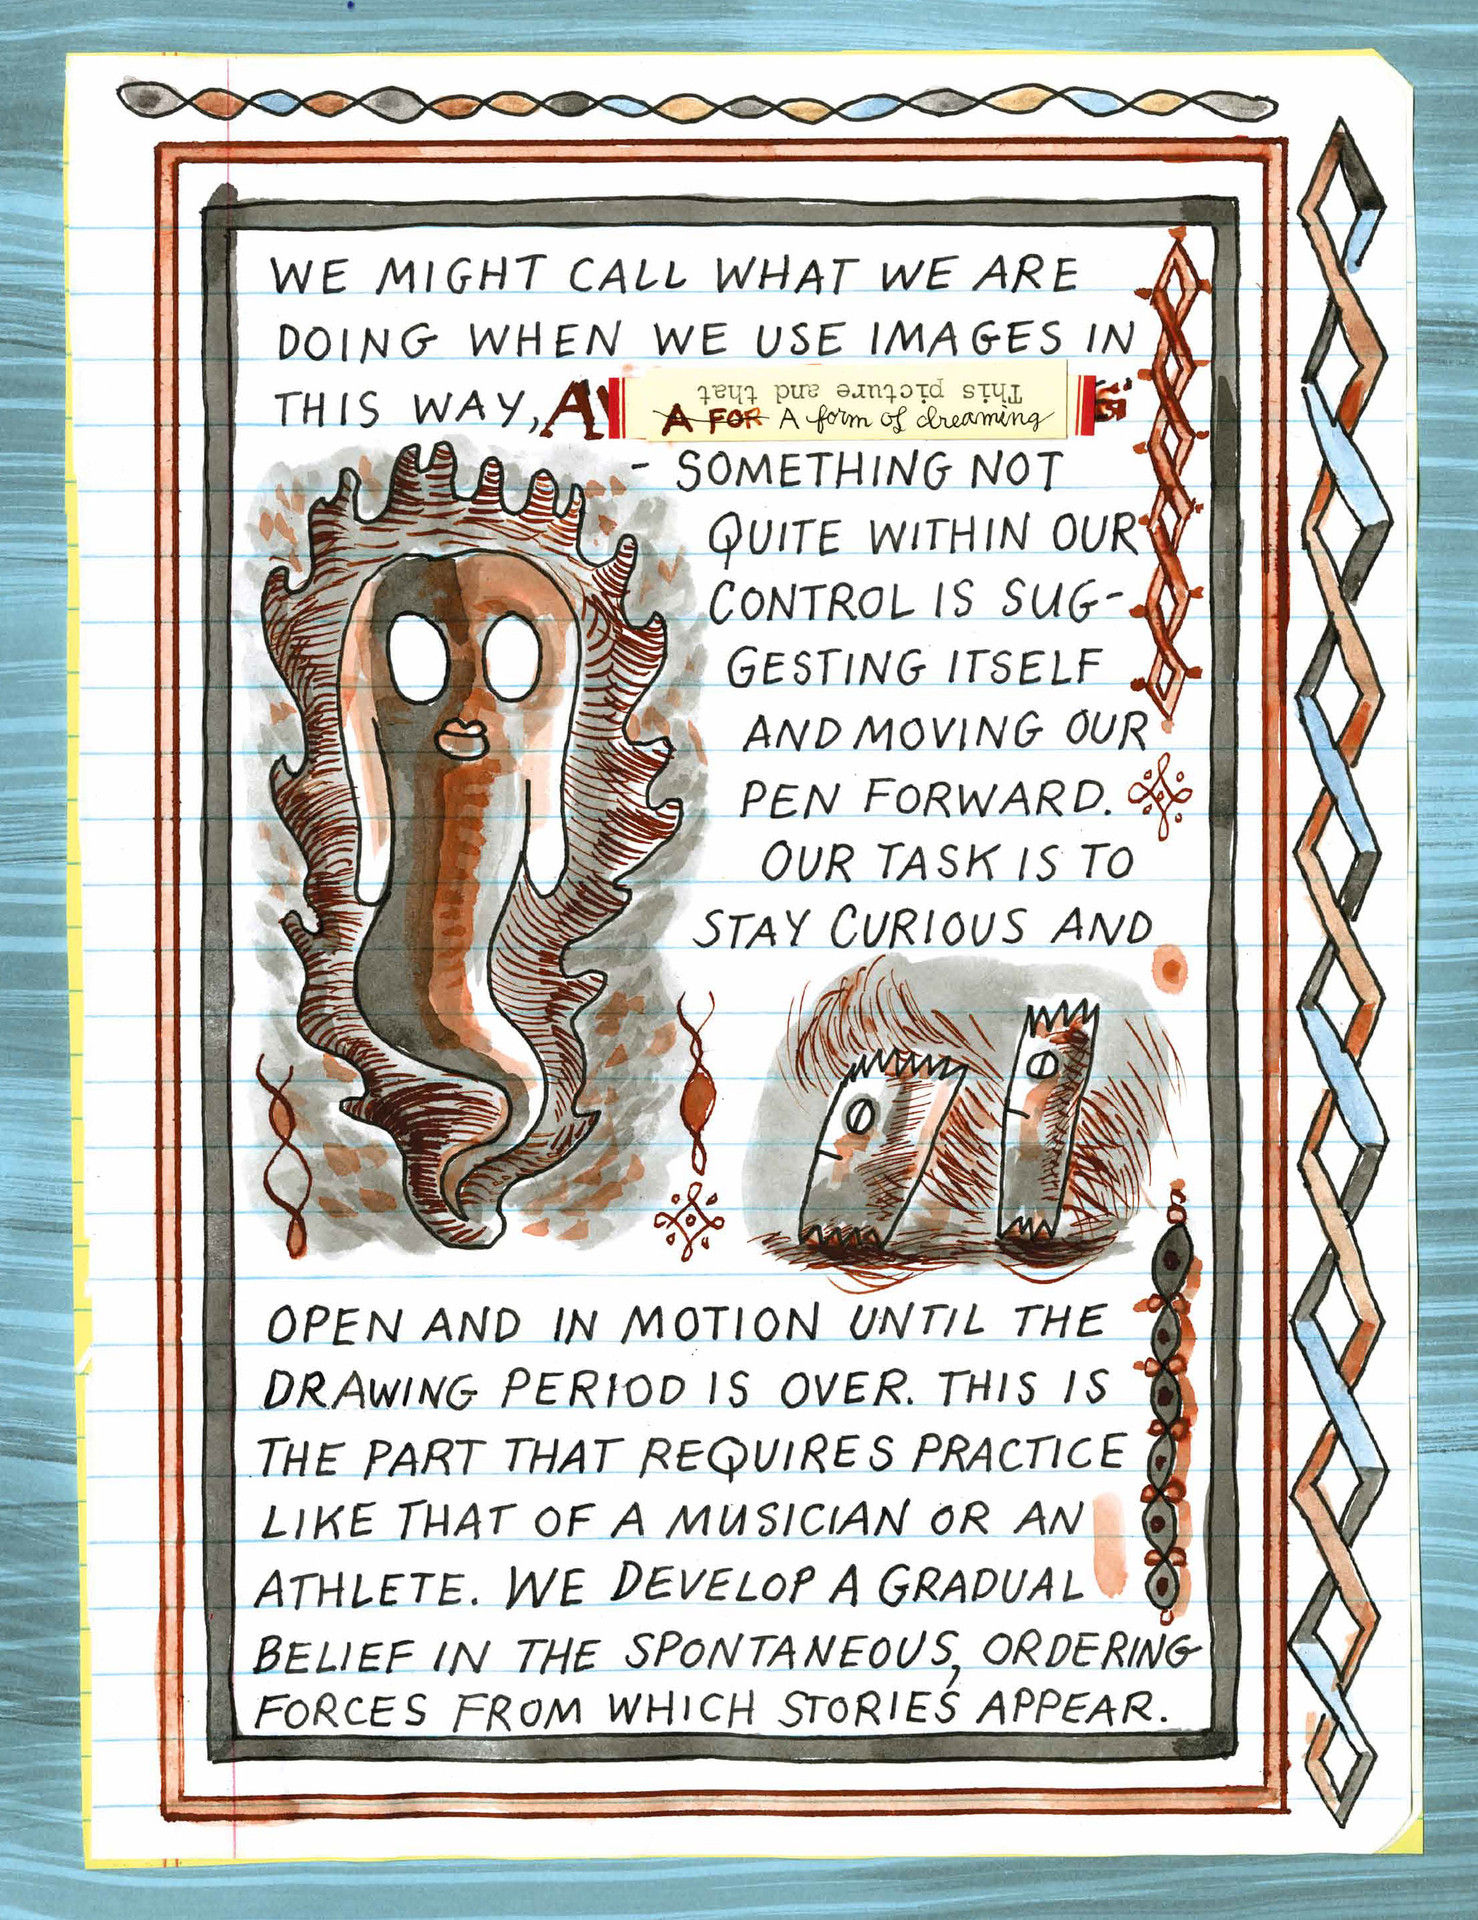 WE MIGHT CALL WHAT WE ARE
DOING WHEN WE USE IMAGES IN
THIS WAY, A
This picture and that
A FOR A form of dreaming
- SOMETHING NOT
QUITE WITHIN OUR
CONTROL IS SUG-
GESTING ITSELF
AND MOVING OUR
PEN FORWARD.
OUR TASK IS TO
STAY CURIOUS AND
OPEN AND IN MOTION UNTIL THE
DRAWING PERIOD IS OVER. THIS IS
THE PART THAT REQUIRES PRACTICE
LIKE THAT OF A MUSICIAN OR AN
ATHLETE. WE DEVELOP A GRADUAL
BELIEF IN THE SPONTANEOUS, ORDERING
FORCES FROM WHICH STORIES APPEAR.